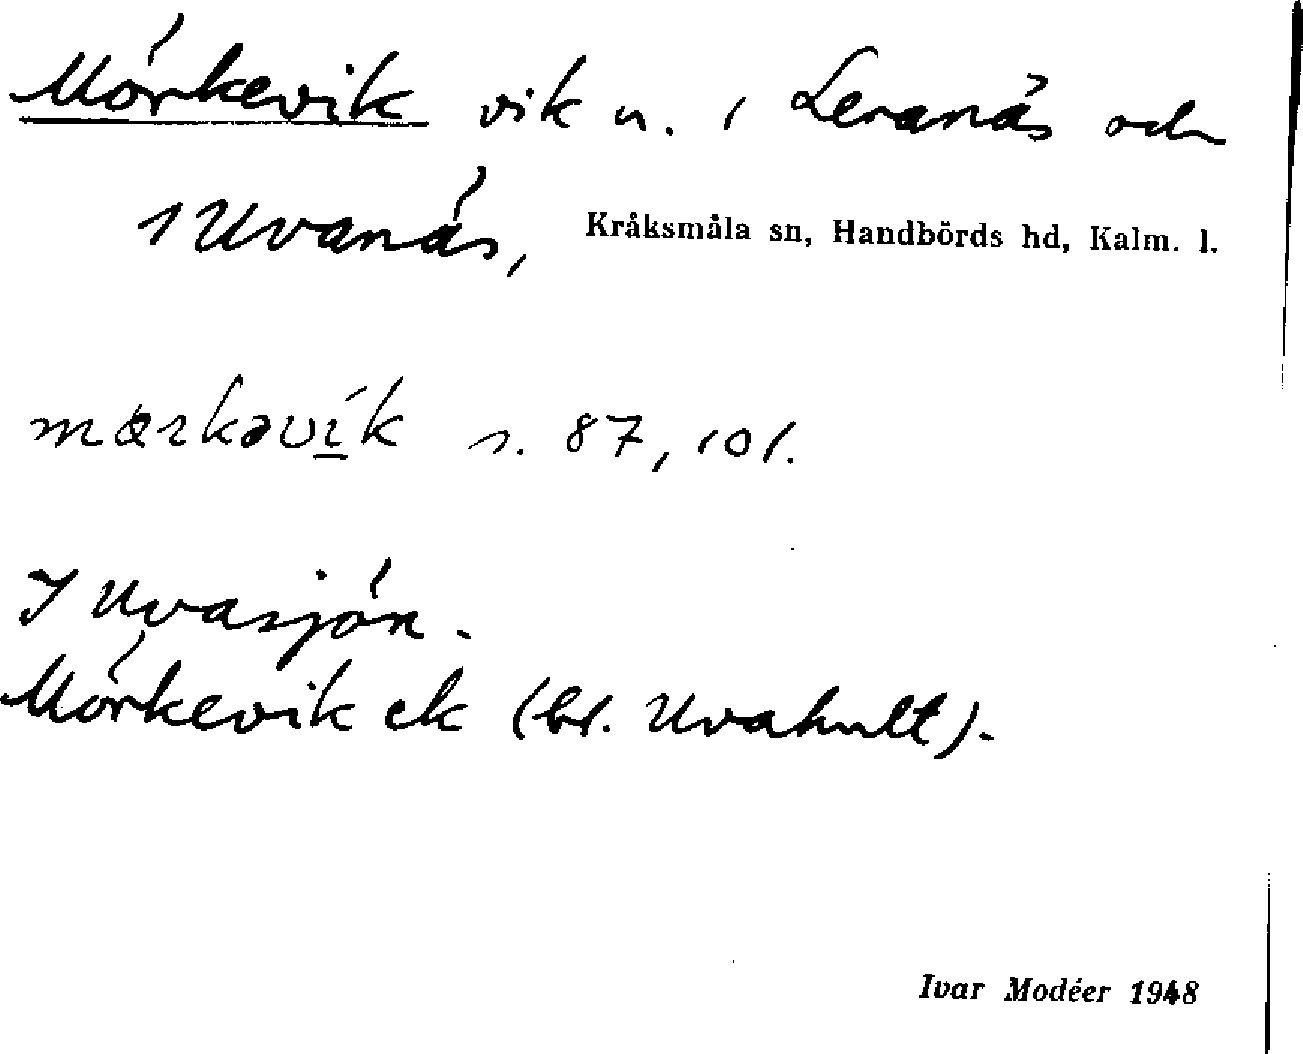 Mörkevik vik u. i Leranäs och
i Uvanäs, Kråksmåla sn, Handbörds hd, Kalm. l.
mœrkəvík s. 87, 101.
I Uvasjön.
Mörkevik ek (bl. Uvahult).
Ivar Modéer 1948